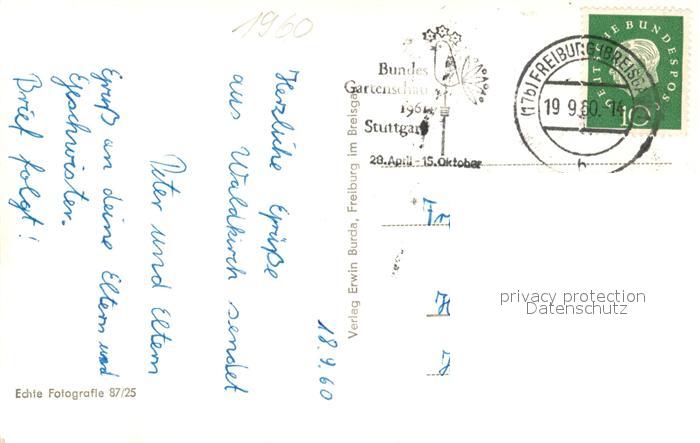 1960
18.9.60
Herzliche Grüße
aus Waldkirch sendet
Peter und Eltern
Gruß an deine Eltern und
Geschwister.
Brief folgt!
Echte Fotografie 87/25
Verlag Erwin Burda, Freiburg im Breisgau
Bundes
Gartenschau
1961
Stuttgart
28. April - 15. Oktober
(17b) FREIBURG (BREISGAU)
19.9.60.-14
h
DEUTSCHE BUNDESPOST
10
privacy protection
Datenschutz